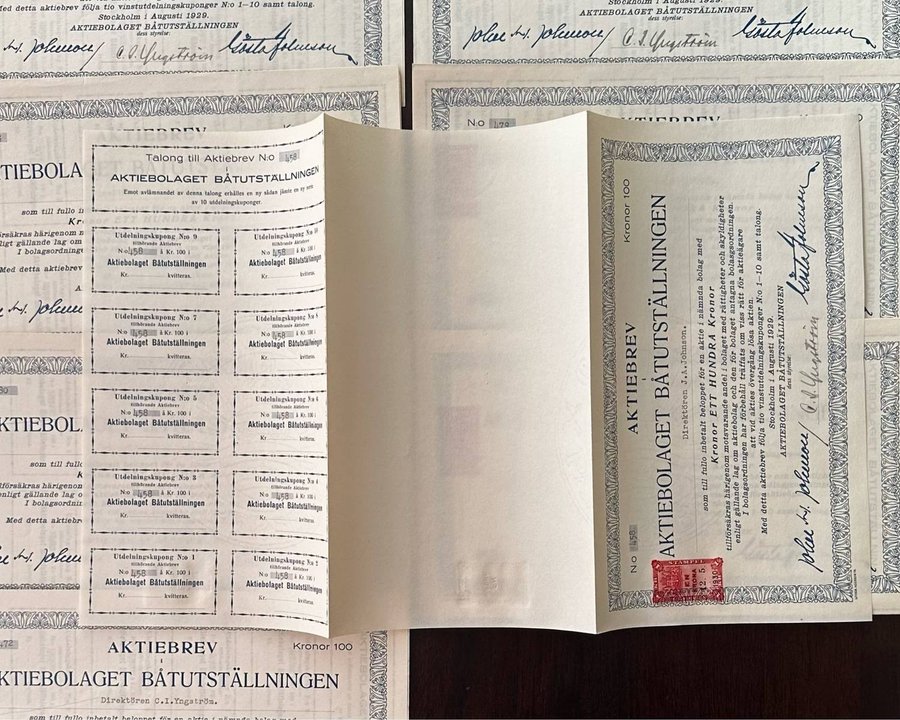 med detta aktiebrev följa tio vinstutdelningskuponger N:o 1—10 samt talong.
Stockholm i Augusti 1929.
AKTIEBOLAGET BÅTUTSTÄLLNINGEN
dess styrelse:
C. I. Yngström
Gösta Johnson
Stockholm i Augusti 1929.
AKTIEBOLAGET BÅTUTSTÄLLNINGEN
dess styrelse:
C. I. Yngström
Gösta Johnson
N:o 478
TIEBOLA
som till fullo i
Med detta aktiebrev
TIEBOL
som till full
Med detta aktiebr
Talong till Aktiebrev N:o 458
i
AKTIEBOLAGET BÅTUTSTÄLLNINGEN
Emot avlämnandet av denna talong erhålles en ny sådan jämte en ny serie
av 10 utdelningskuponger.
Utdelningskupong N:o 9
tillhörande Aktiebrev
N:o 458 à Kr. 100 i
Aktiebolaget Båtutställningen
Kr. kvitteras.
Utdelningskupong N:o 10
tillhörande Aktiebrev
N:o 458 à Kr. 100 i
Aktiebolaget Båtutställningen
Kr. kvitteras.
Utdelningskupong N:o 7
tillhörande Aktiebrev
N:o 458 à Kr. 100 i
Aktiebolaget Båtutställningen
Kr. kvitteras.
Utdelningskupong N:o 8
tillhörande Aktiebrev
N:o 458 à Kr. 100 i
Aktiebolaget Båtutställningen
Kr. kvitteras.
Utdelningskupong N:o 5
tillhörande Aktiebrev
N:o 458 à Kr. 100 i
Aktiebolaget Båtutställningen
Kr. kvitteras.
Utdelningskupong N:o 6
tillhörande Aktiebrev
N:o 458 à Kr. 100 i
Aktiebolaget Båtutställningen
Kr. kvitteras.
Utdelningskupong N:o 3
tillhörande Aktiebrev
N:o 458 à Kr. 100 i
Aktiebolaget Båtutställningen
Kr. kvitteras.
Utdelningskupong N:o 4
tillhörande Aktiebrev
N:o 458 à Kr. 100 i
Aktiebolaget Båtutställningen
Kr. kvitteras.
Utdelningskupong N:o 1
tillhörande Aktiebrev
N:o 458 à Kr. 100 i
Aktiebolaget Båtutställningen
Kr. kvitteras.
Utdelningskupong N:o 2
tillhörande Aktiebrev
N:o 458 à Kr. 100 i
Aktiebolaget Båtutställningen
Kr. kvitteras.
N:o 458
Kronor 100
AKTIEBREV
i
AKTIEBOLAGET BÅTUTSTÄLLNINGEN
Direktören J.A.Johnson.
som till fullo inbetalt beloppet för en aktie i nämnda bolag med
Kronor ETT HUNDRA Kronor
tillförsäkras härigenom motsvarande andel i bolaget med rättigheter och skyldigheter
enligt gällande lag om aktiebolag och den för bolaget antagna bolagsordningen.
I bolagsordningen har förbehåll träffats om viss rätt för aktieägare
att vid akties övergång lösa aktien.
Med detta aktiebrev följa tio vinstutdelningskuponger N:o 1—10 samt talong.
Stockholm i Augusti 1929.
AKTIEBOLAGET BÅTUTSTÄLLNINGEN
dess styrelse:
C. I. Yngström
Gösta Johnson
STÄMPEL
EN
KRONA
472
AKTIEBREV
i
Kronor 100
KTIEBOLAGET BÅTUTSTÄLLNINGEN
Direktören C.I.Yngström.
som till fullo inbetalt beloppet för en aktie i nämnda bolag med